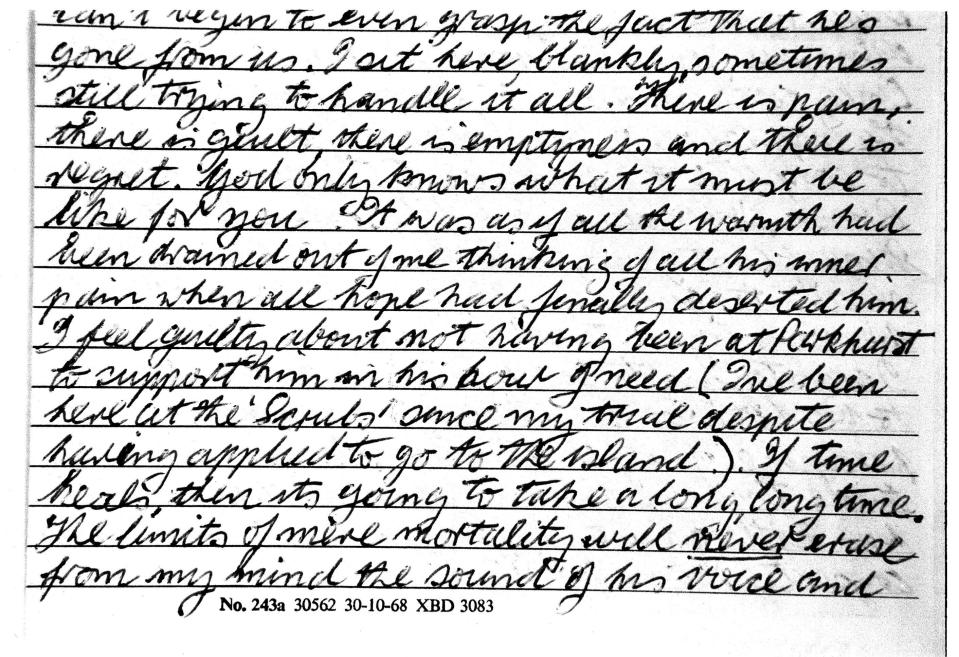 can't begin to even grasp the fact that he's
gone from us. I sit here, blankly, sometimes
still trying to handle it all. There is pain,
there is guilt, there is emptyness and there is
regret. God only knows what it must be
like for you. It was as if all the warmth had
been drained out of me thinking of all his inner
pain when all hope had finally deserted him.
I feel guilty about not having been at Parkhurst
to support him in his hour of need (I've been
here at the 'Scrubs' since my trial despite
having applied to go to the island). If time
heals then its going to take a long long time.
The limits of mere mortality will never erase
from my mind the sound of his voice and
No. 243a 30562 30-10-68 XBD 3083